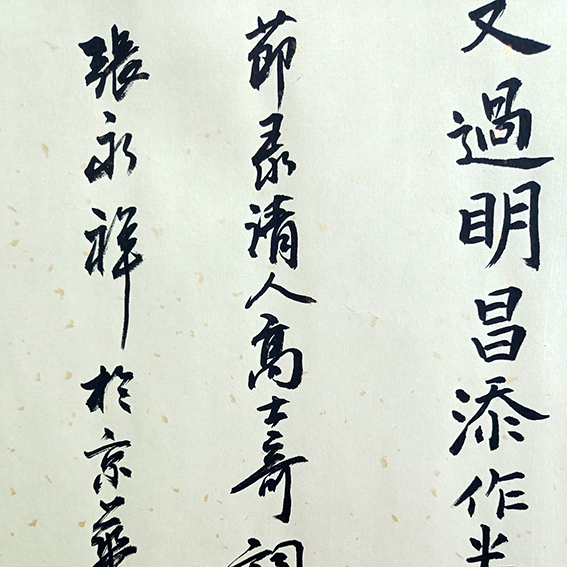 又過明昌添作半
節录清人高士奇詞
張永祥於京華